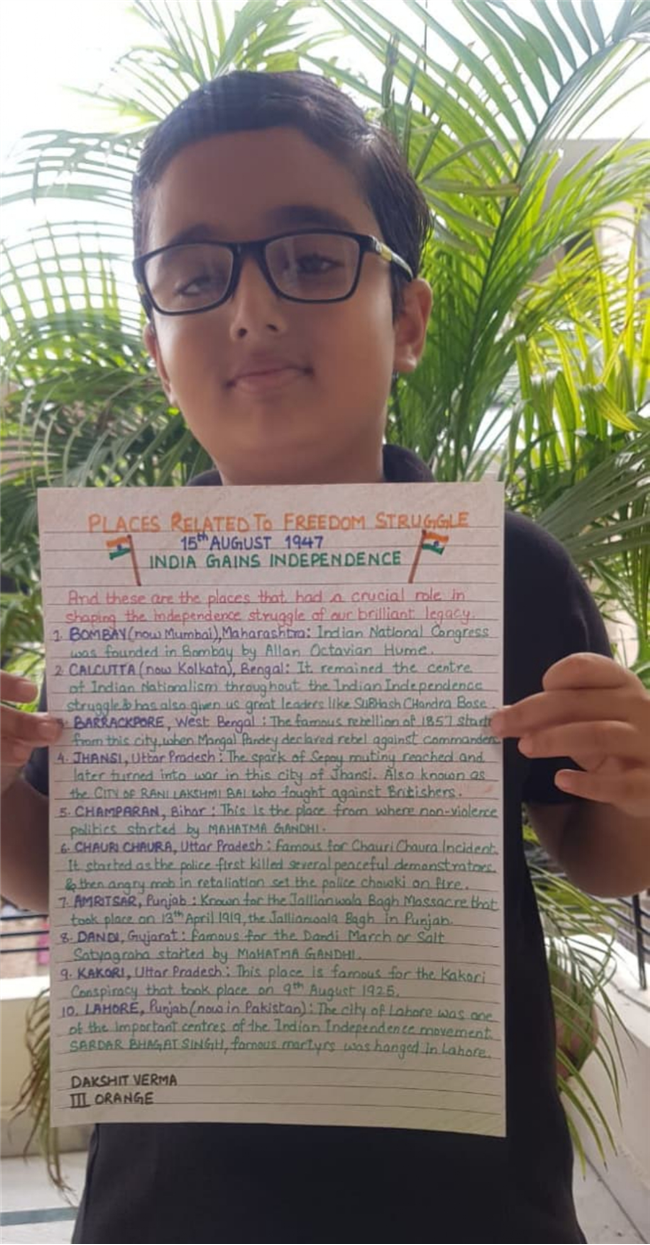 PLACES RELATED TO FREEDOM STRUGGLE
15th AUGUST 1947
INDIA GAINS INDEPENDENCE
And these are the places that had a crucial role in
shaping the independence struggle of our brilliant legacy.
1. BOMBAY (now Mumbai), Maharashtra: Indian National Congress
was founded in Bombay by Allan Octavian Hume.
2. CALCUTTA (now Kolkata), Bengal: It remained the centre
of Indian Nationalism throughout the Indian Independence
struggle & has also given us great leaders like SuBHash Chandra Bose.
3. BARRACKPORE, West Bengal: The famous rebellion of 1857 starts
from this city, when Mangal Pandey declared rebel against commander
4. JHANSI, Uttar Pradesh: The spark of Sepoy mutiny reached and
later turned into war in this city of Jhansi. Also known as
the CITY OF RANI LAKSHMI BAI who fought against Britishers.
5. CHAMPARAN, Bihar: This is the place from where non-violence
politics started by MAHATMA GANDHI.
6. CHAURI CHAURA, Uttar Pradesh: famous for Chauri Chaura Incident.
It started as the police first killed several peaceful demonstrators
& then angry mob in retaliation set the police chowki on fire.
7. AMRITSAR, Punjab: Known for the Jallianwala Bagh Massacre that
took place on 13th April 1919, the Jallianwala Bagh in Punjab.
8. DANDI, Gujarat: famous for the Dandi March or Salt
Satyagraha started by MAHATMA GANDHI.
9. KAKORI, Uttar Pradesh: This place is famous for the Kakori
Conspiracy that took place on 9th August 1925.
10. LAHORE, Punjab (now in Pakistan): The city of Lahore was one
of the important centres of the Indian Independence movement.
SARDAR BHAGAT SINGH, famous martyrs was hanged in Lahore.
DAKSHIT VERMA
III ORANGE